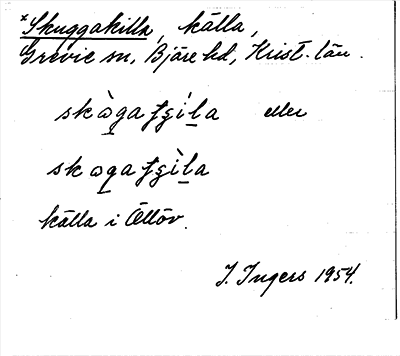 *Skuggakilla, källa,
Grevie sn, Bjäre hd, Krist. län.
skògaʃʒíla eller
skogaʃʒìla
källa i Ällöv.
I. Ingers 1954.